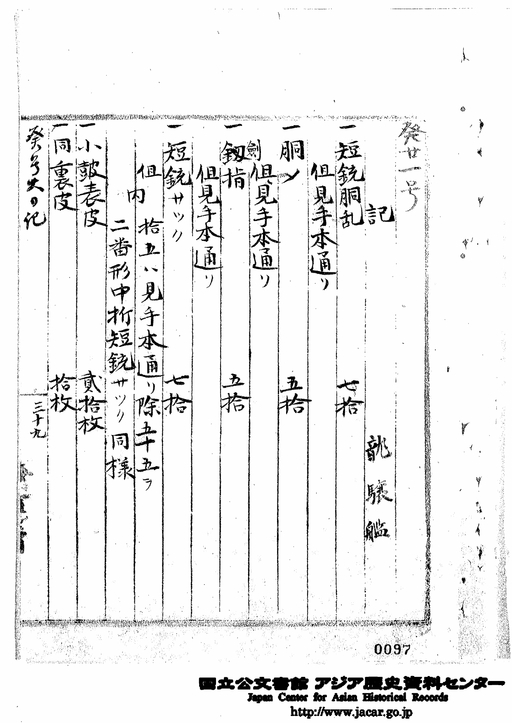 癸廿一号
記
龍驤艦
一 短銃胴乱 七拾
但見手本通リ
一 胴〆 五拾
但見手本通リ
一 釼指 五拾
但見手本通リ
一 短銃サツク 七拾
但 拾五ハ見手本通リ除五十五ヲ
内 二番形中折短銃サツク同様
一 小鼓表皮 貳拾枚
一 同裏皮 拾枚
三十九
0097
国立公文書館 アジア歴史資料センター
Japan Center for Asian Historical Records
http://www.jacar.go.jp